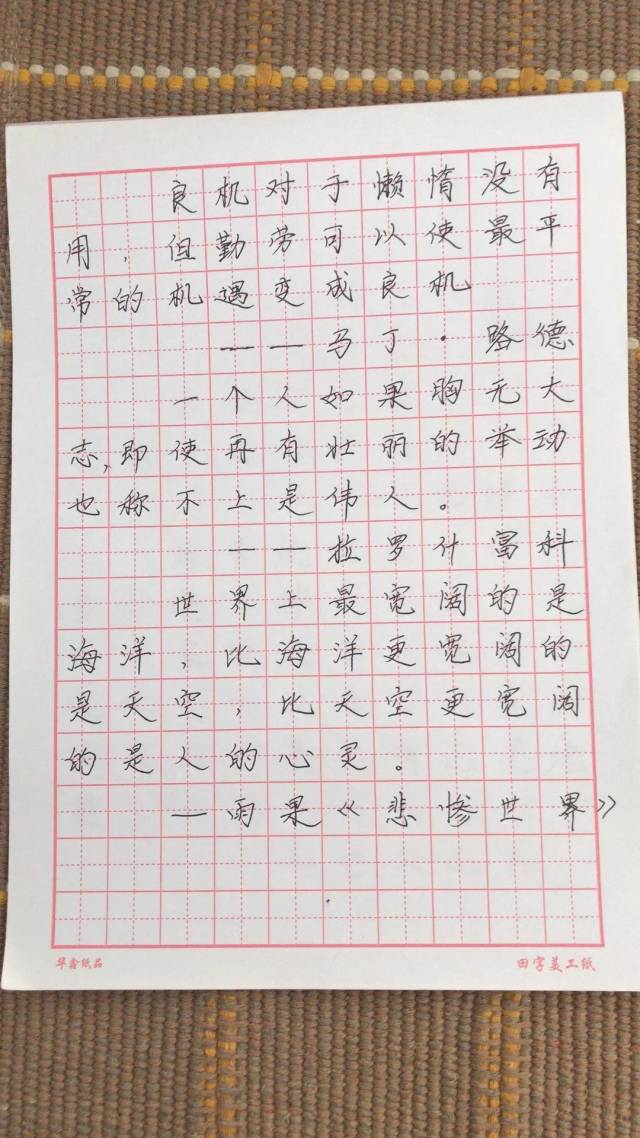 良机对于懒惰没有
用，但勤劳可以使最平
常的机遇变成良机
——马丁·路德
一个人如果胸无大
志,即使再有壮丽的举动
也称不上是伟人。
——拉罗什富科
世界上最宽阔的是
海洋，比海洋更宽阔的
是天空，比天空更宽阔
的是人的心灵。
—雨果《悲惨世界》
华鑫纸品
田字美工纸